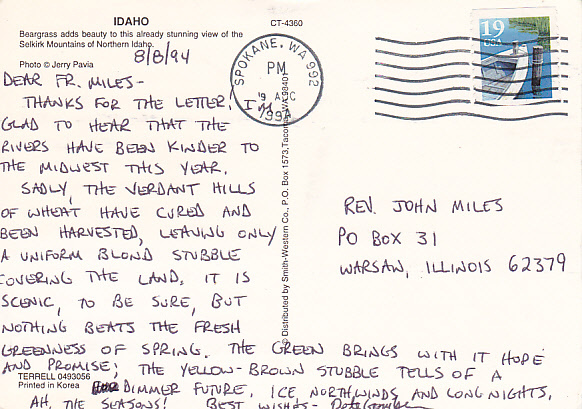 IDAHO
Beargrass adds beauty to this already stunning view of the
Selkirk Mountains of Northern Idaho.
Photo © Jerry Pavia
CT-4360
8/8/94
DEAR FR. MILES-
THANKS FOR THE LETTER! I'M
GLAD TO HEAR THAT THE
RIVERS HAVE BEEN KINDER TO
THE MIDWEST THIS YEAR.
SADLY, THE VERDANT HILLS
OF WHEAT HAVE CURED AND
BEEN HARVESTED, LEAVING ONLY
A UNIFORM BLOND STUBBLE
COVERING THE LAND. IT IS
SCENIC, TO BE SURE, BUT
NOTHING BEATS THE FRESH
GREENNESS OF SPRING. THE GREEN BRINGS WITH IT HOPE
AND PROMISE; THE YELLOW-BROWN STUBBLE TELLS OF A
DIMMER FUTURE, ICE NORTHWINDS, AND LONG NIGHTS.
AH, THE SEASONS! BEST WISHES-
TERRELL 0493056
Printed in Korea
© Distributed by Smith-Western Co., P.O. Box 1573, Tacoma, WA 98401
SPOKANE, WA 992
PM
1994
19
USA
REV. JOHN MILES
PO BOX 31
WARSAW, ILLINOIS 62379